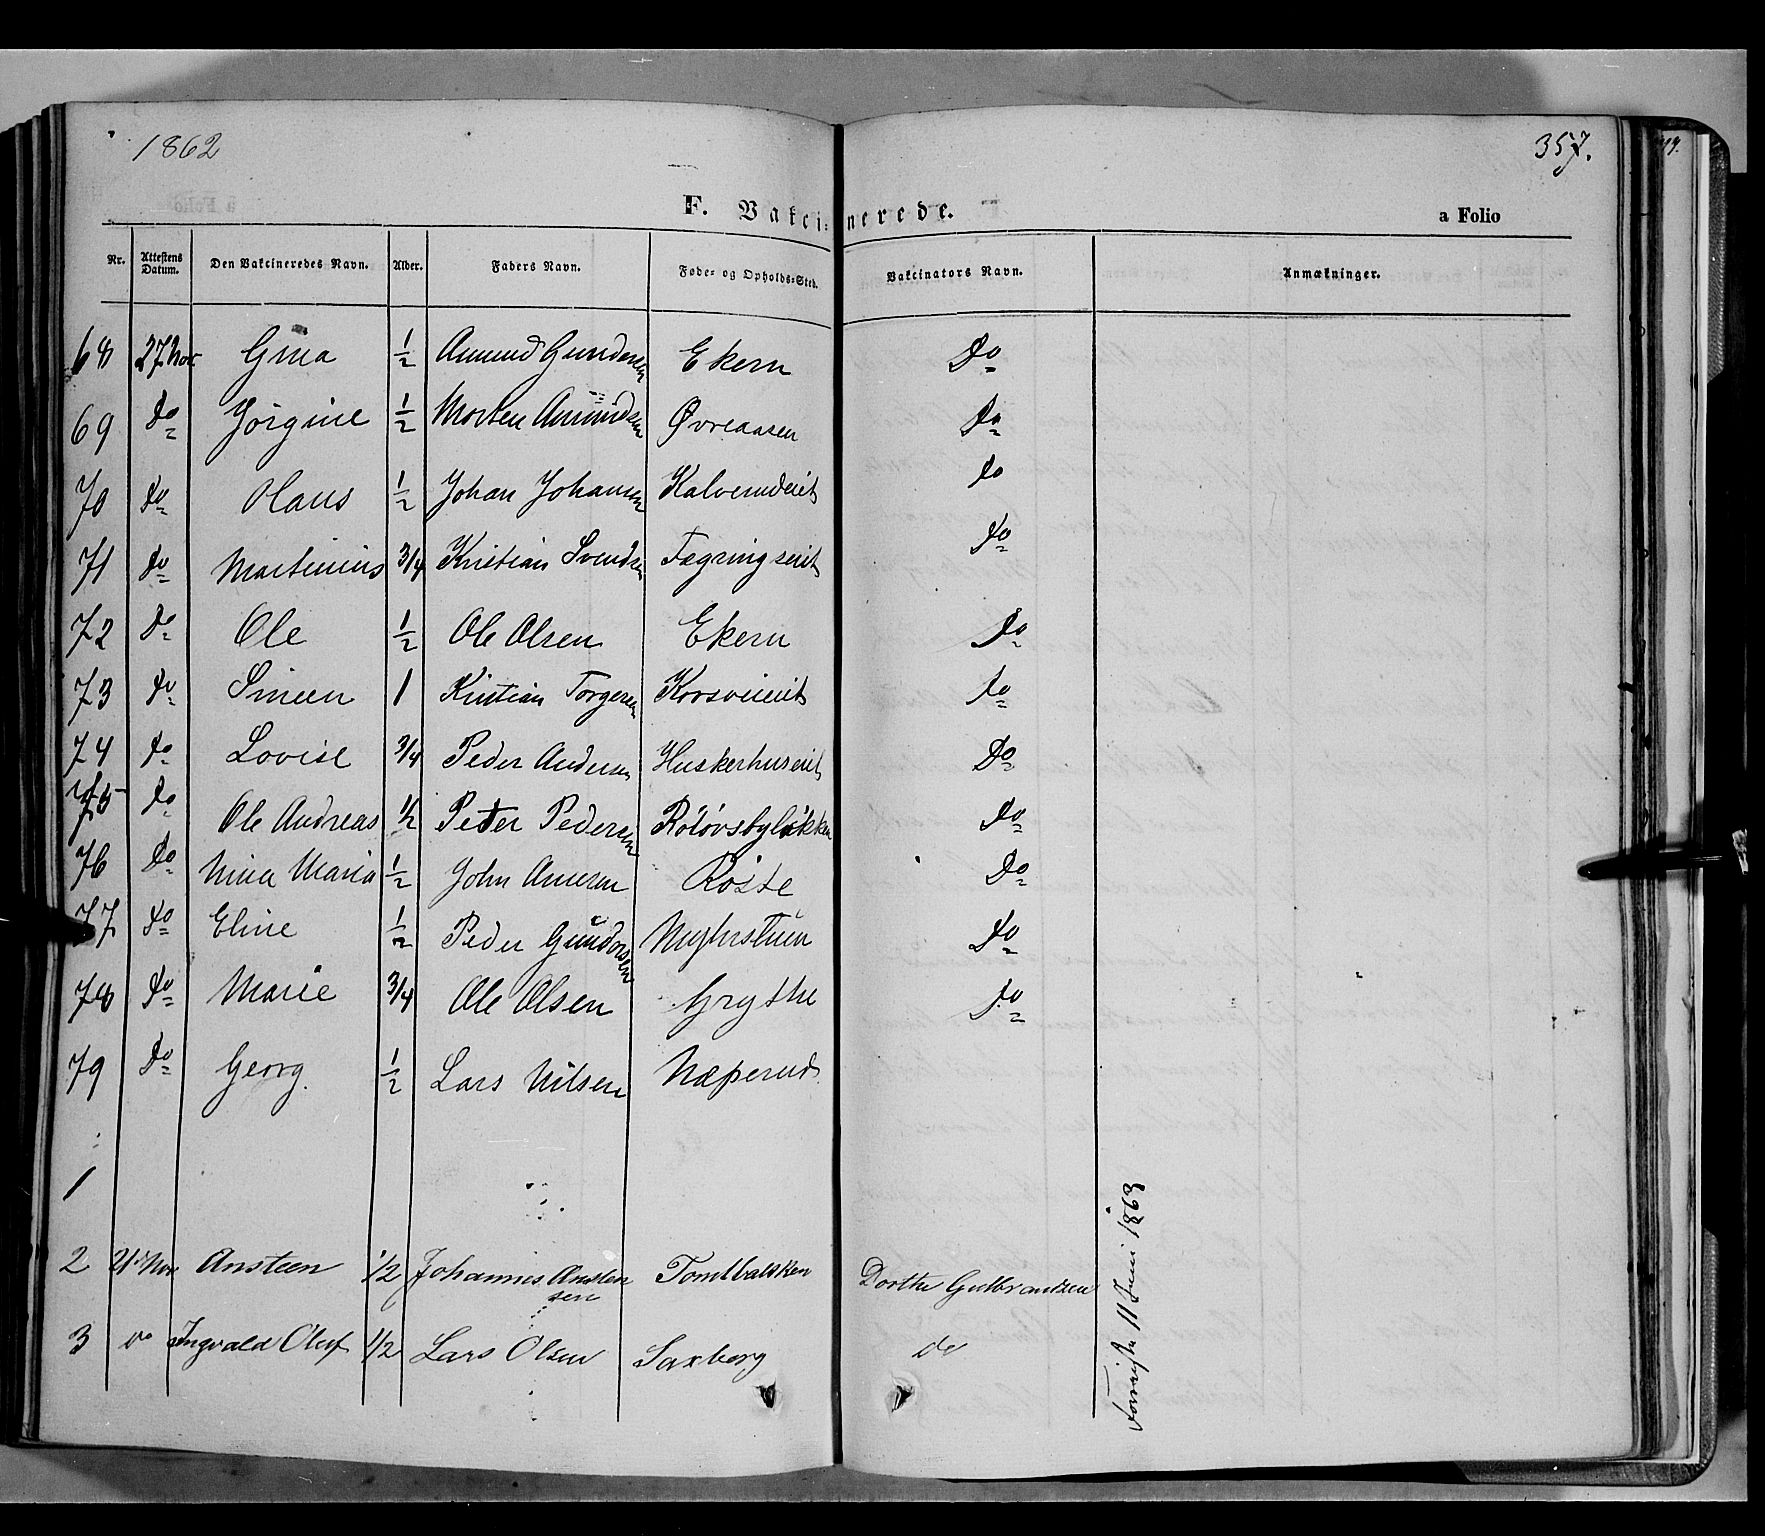 1862
357.
F. Vakcinerede.
a Folio
Nr. Attestens Datum. Den Vakcineredes Navn. Alder. Faders Navn. Føde- og Opholds-Sted. Vakcinators Navn. Anmærkninger.
68 27 Nov Gina 1/2 Amund Gundersen Ekern Do
69 Do Jörgine 1/2 Morten Amundsen Øvreaasen Do
70 Do Olaus 1/2 Johan Johansen Kalverudeiet Do
71 Do Martinius 3/4 Kristian Svendsen Fægringseiet Do
72 Do Ole 1/2 Ole Olsen Ekern Do
73 Do Sineen 1 Kristian Torgersen Korsveieiet Do
74 Do Lovise 3/4 Peder Andersen Huskerhuseiet Do
75 Do Ole Andreas 1/2 Peter Pedersen Rolovsbyløkken Do
76 Do Nina Maria 1/2 John Amesen Röste Do
77 Do Eline 1/2 Peder Gundersen Do
78 Do Marie 3/4 Ole Olsen Grythe Do
79 Do Georg. 1/2 Lars Nilsen Næperud
1
2 21 Nov Ansteen 1/2 Johannes Anstensen Tomlbakken Dorthe Gulbrandsen
3 do Ingvald Oluf 1/2 Lars Olsen Saxberg do
11 Juni 1863